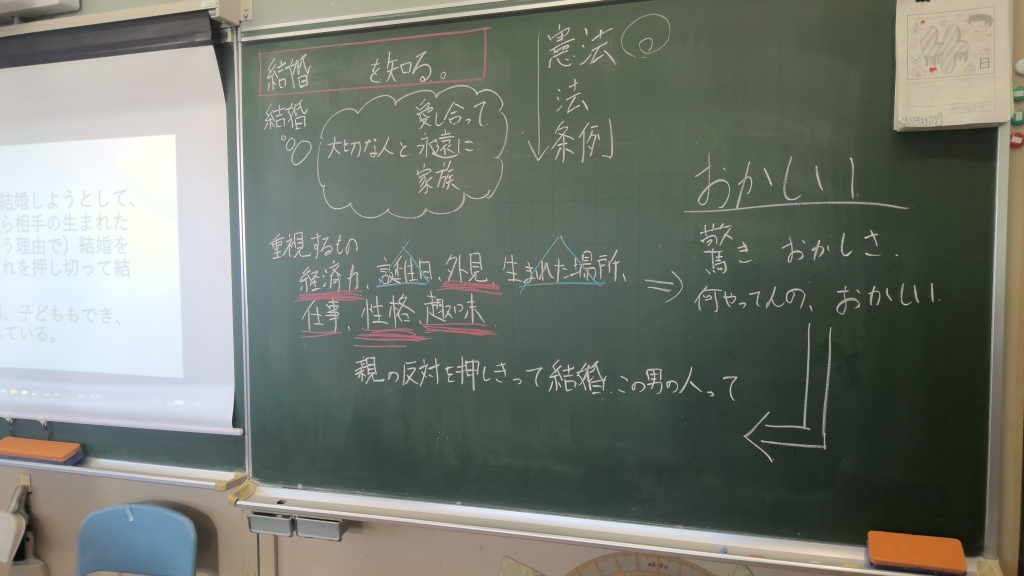 結婚しようとして、
ら相手の生まれた
う理由で）結婚を
れを押し切って結
、子どももでき、
している。
結婚　を知る。
結婚
愛し合って
大切な人と永遠に
家族
憲法
法
条例
重視するもの
経済力、誕生日、外見、生まれた場所、
仕事、性格、趣味
おかしい
驚き　おかしさ、
何やってんの、おかしい
親の反対を押しきって結婚、この男の人って
日